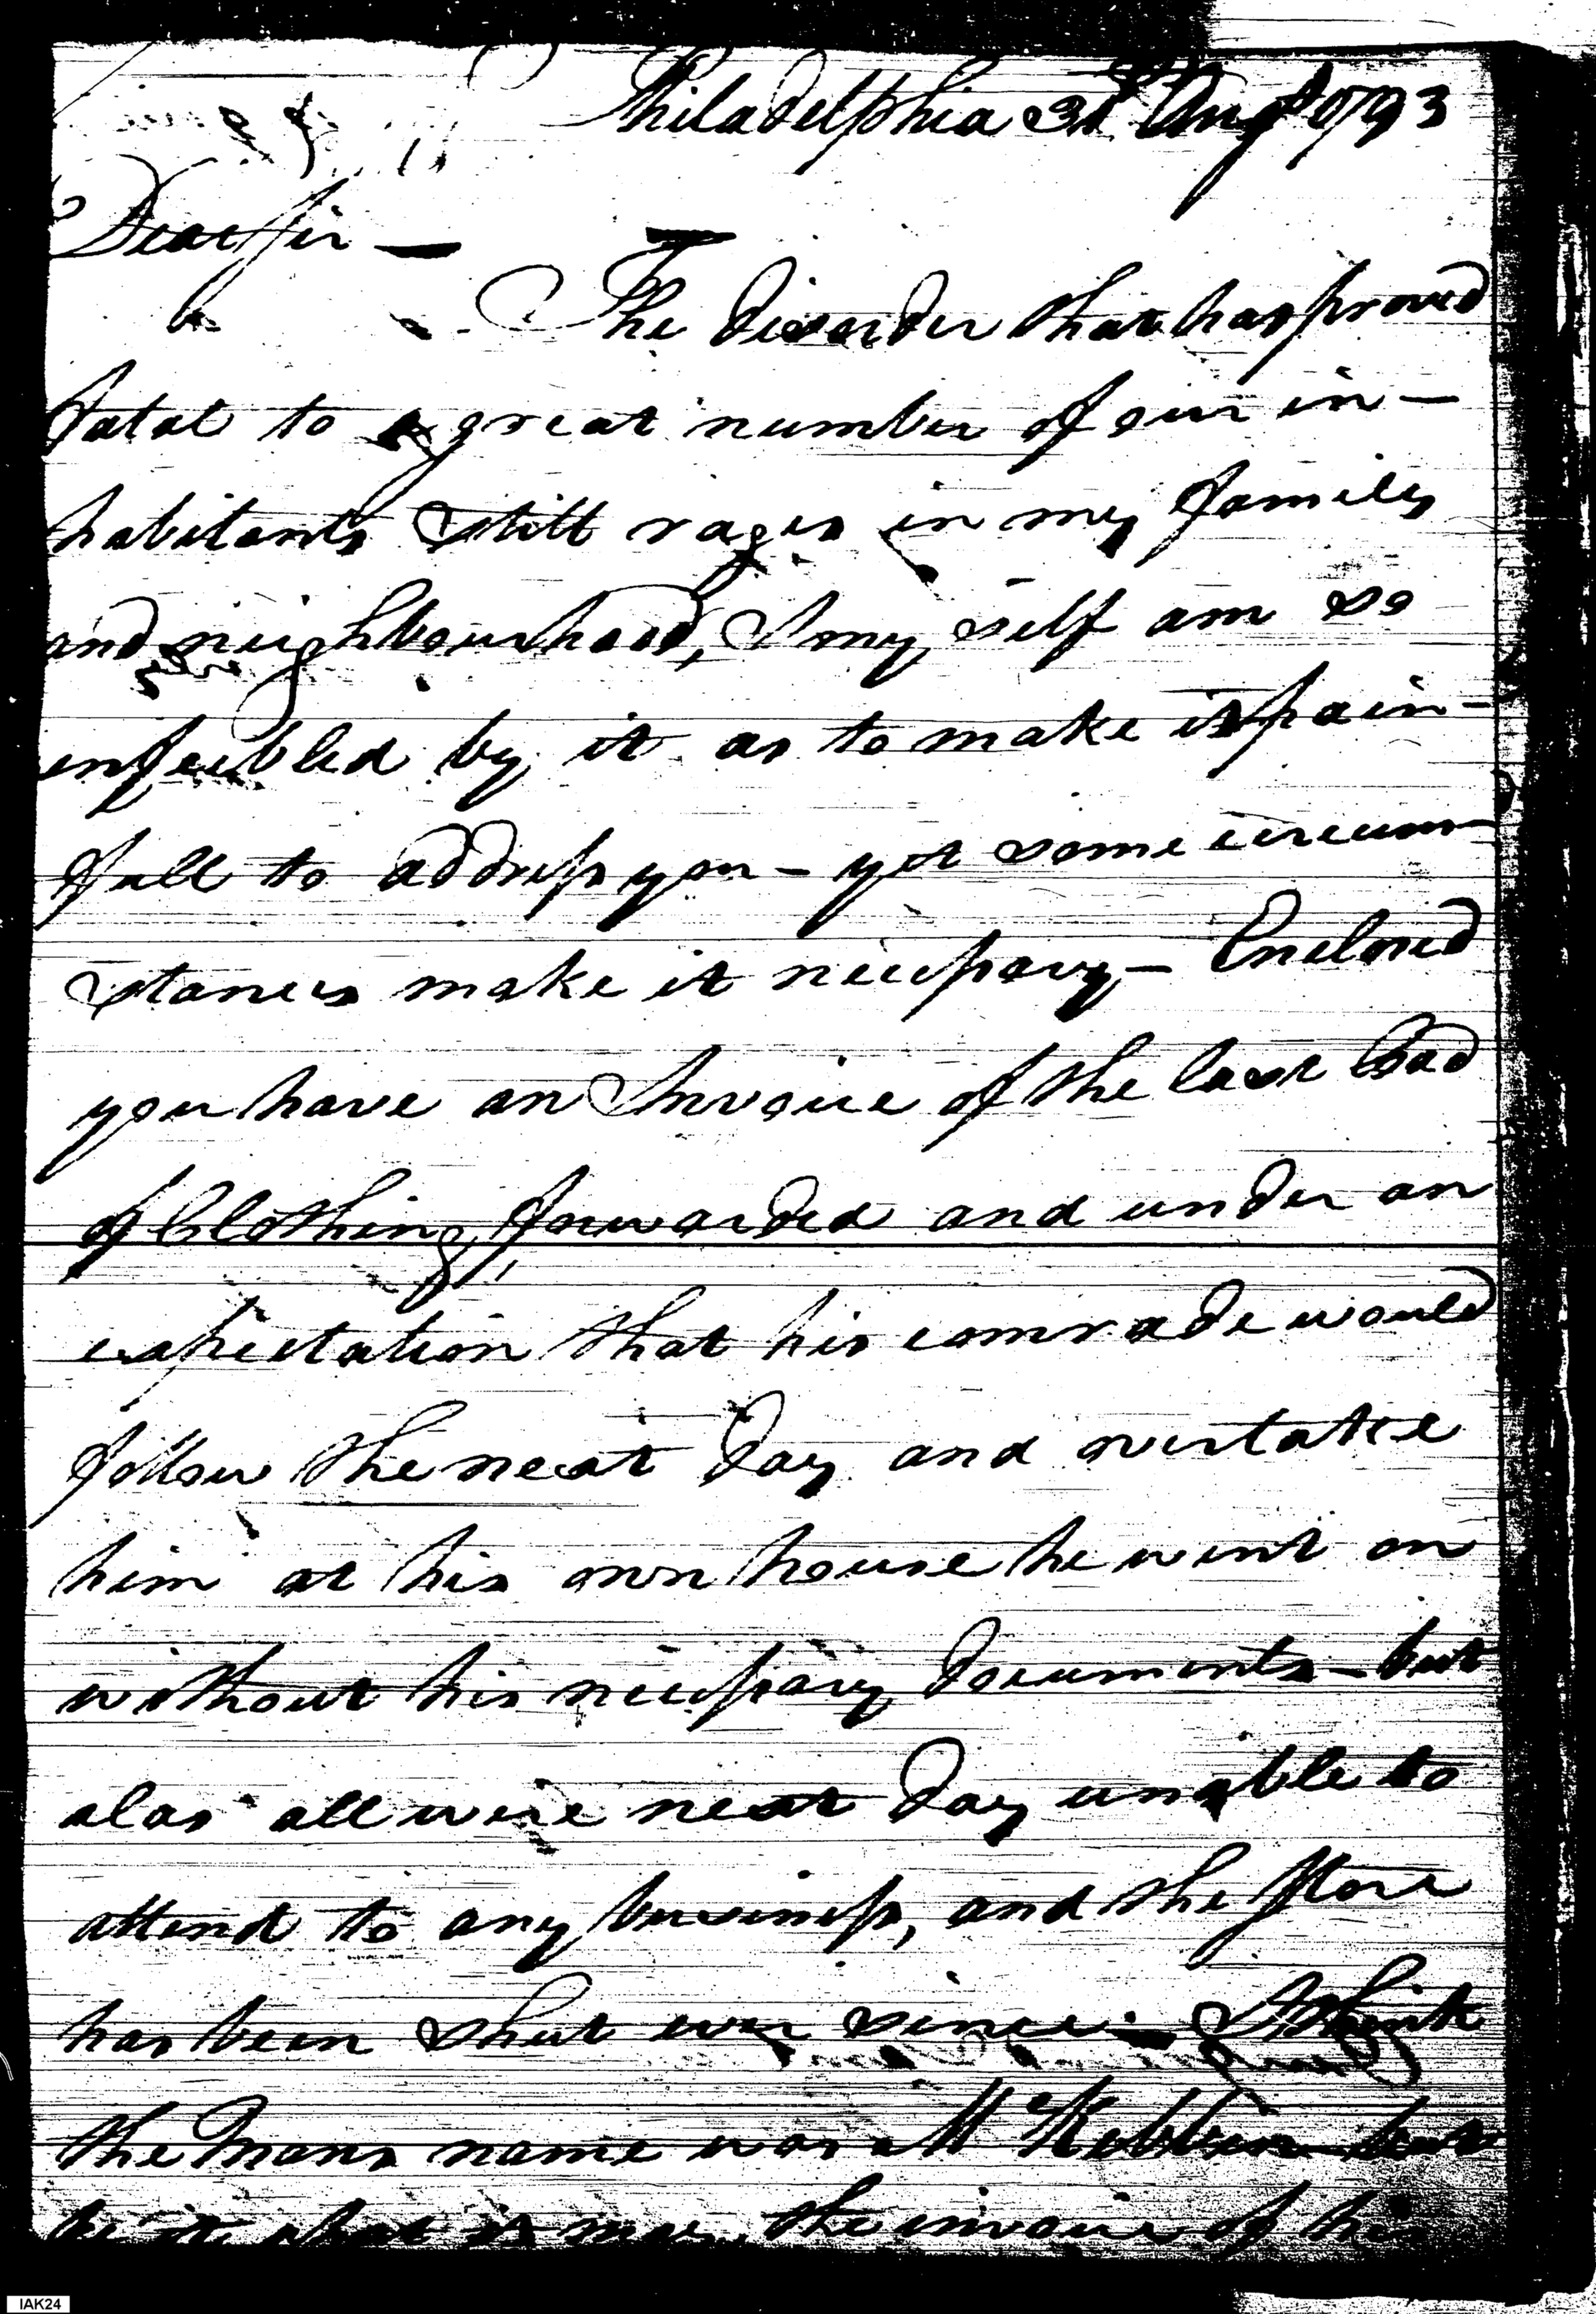 Philadelphia 31 Augt 1793
Dear Sir —
The disorder that has proved
fatal to a great number of our in-
habitants still rages in my family
and neighbourhood, I my self am so
enfeebled by it as to make it pain-
full to address you - yet some circum-
stances make it necessary - Enclosed
you have an Invoice of the last load
of Clothing forwarded and under an
expectation that his comrade would
follow the next day and overtake
him at his own house he went on
without his necessary documents - but
alas all were next day unable to
attend to any business, and the Store
has been shut ever since - I think
the Mans name was Mc Kibbin but
be it what it may, the invoice of his
IAK24